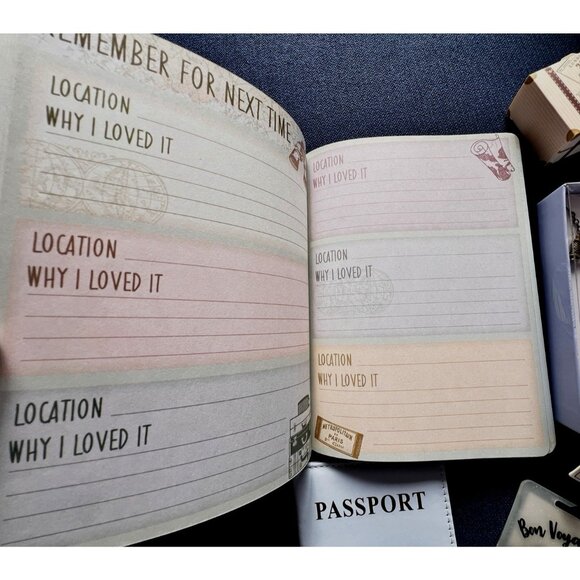 REMEMBER FOR NEXT TIME
LOCATION
WHY I LOVED IT
LOCATION
WHY I LOVED IT
LOCATION
WHY I LOVED IT
LOCATION
WHY I LOVED IT
LOCATION
WHY I LOVED IT
LOCATION
WHY I LOVED IT
METROPOLITAIN
PARIS
PASSPORT
Bon Voya